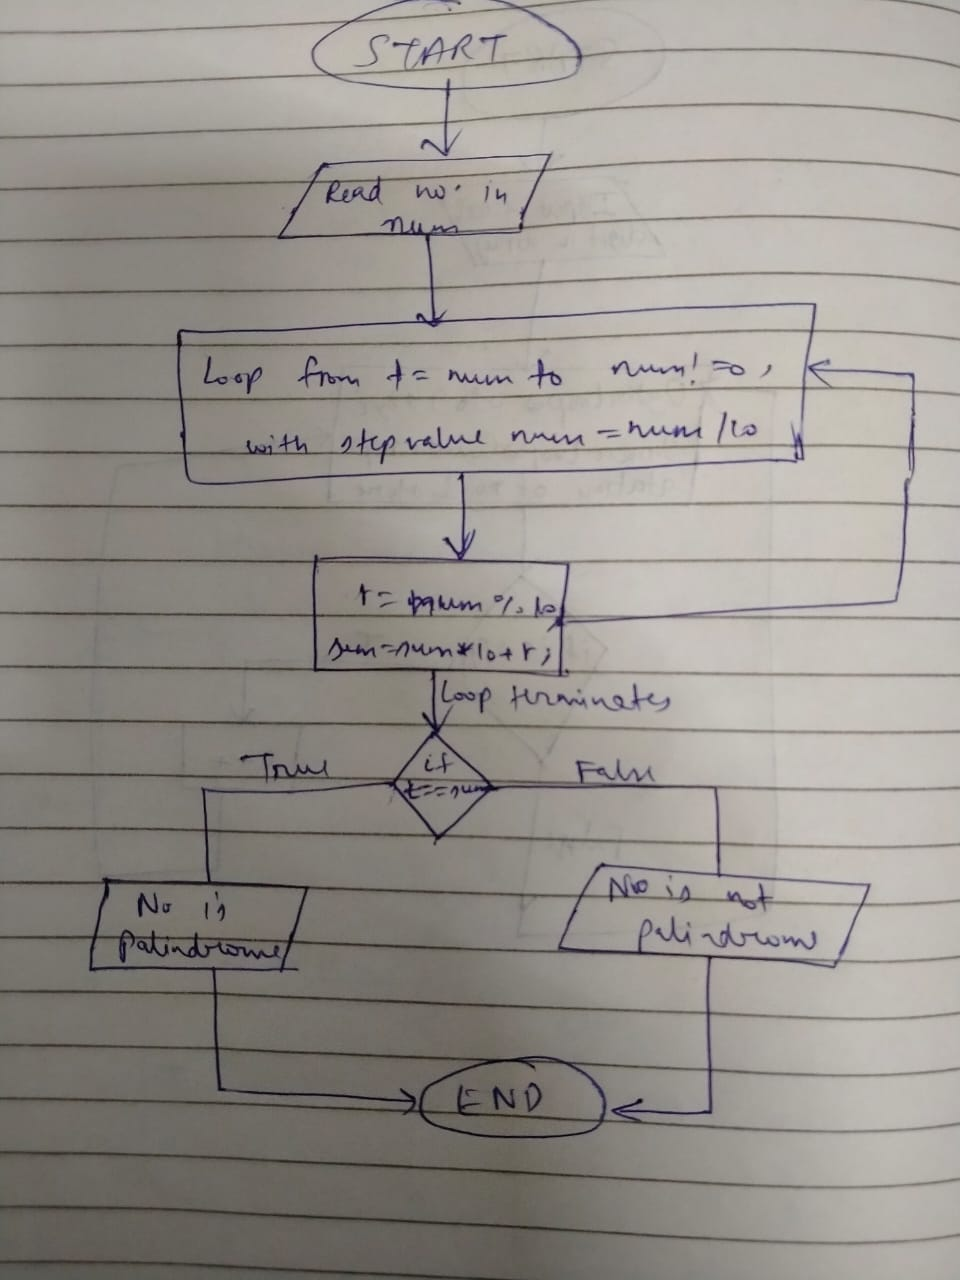 START
Read no. in
num
Loop from t = num to num! =0,
with step value num = num /10
r = num % 10
sum=sum*10+r;
Loop terminates
True
if
False
t==sum
No is
Palindrome
No is not
palindrome
END